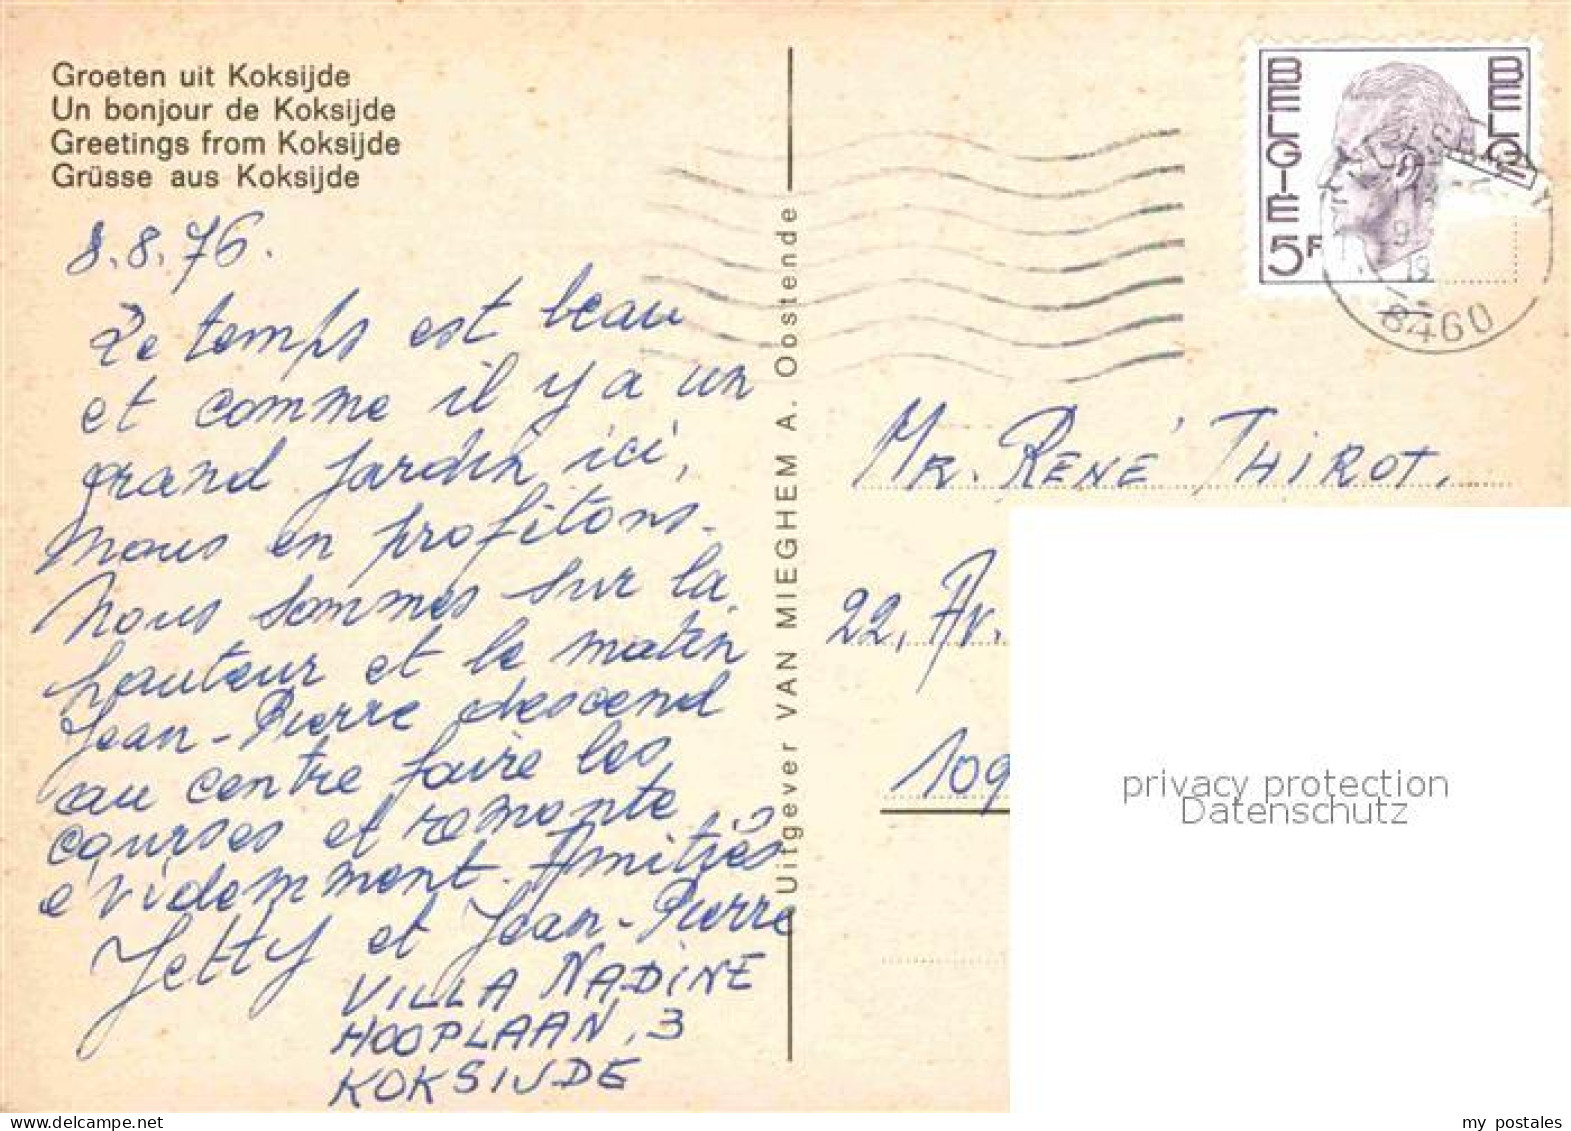 Groeten uit Koksijde
Un bonjour de Koksijde
Greetings from Koksijde
Grüsse aus Koksijde
8.8.76.
Le temps est beau
et comme il y a un
grand jardin ici,
nous en profitons.
Nous sommes sur la
hauteur et le matin
Jean-Pierre descend
au centre faire les
courses et remonte
évidemment. Amitiés
Jetty et Jean-Pierre
VILLA NADINE
HOOPLAAN, 3
KOKSIJDE
Uitgever VAN MIEGHEM A. Oostende
BELGIE
BELG
5F
9
19
8460
MR. RENÉ THIROT.
22, AV.
109
privacy protection
Datenschutz
delcampe.net
my postales